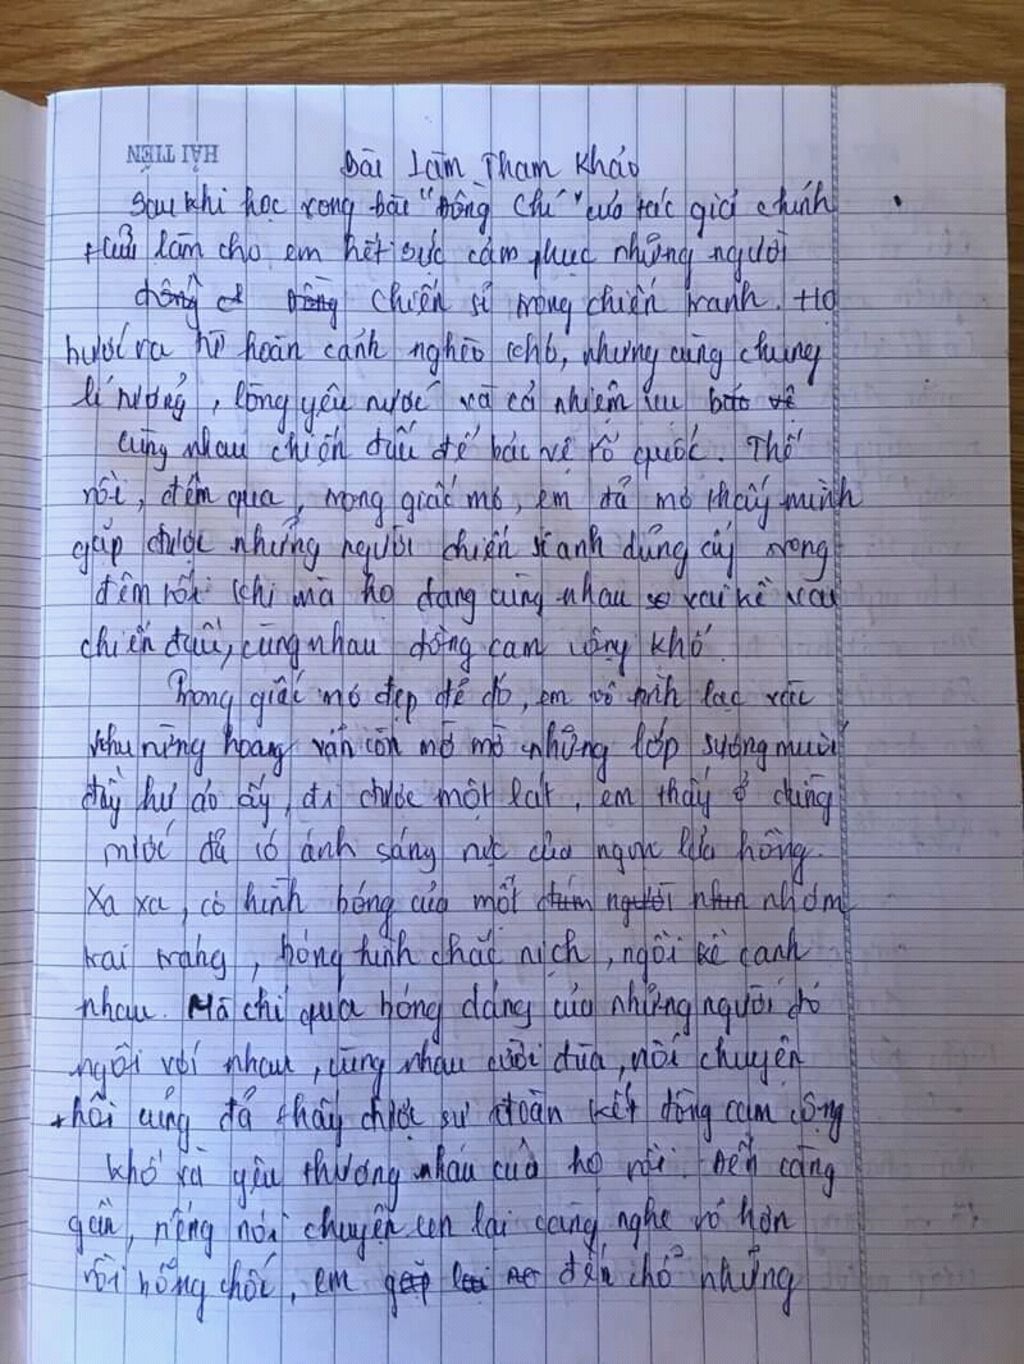 HẢI TIẾN
Bài Làm Tham Khảo
Sau khi học xong bài "Đồng Chí" của tác giả chính
hữu làm cho em hết sức cảm phục những người
chiến sĩ trong chiến tranh. Họ
bước ra từ hoàn cảnh nghèo khó, nhưng cùng chung
lí tưởng, lòng yêu nước và cả nhiệm vụ
cùng nhau chiến đấu để bảo vệ tổ quốc. Thế
rồi, đêm qua, trong giấc mơ, em đã mơ thấy mình
gặp được những người chiến sĩ anh dũng ấy trong
đêm tối khi mà họ đang cùng nhau vai kề vai
chiến đấu, cùng nhau đồng cam cộng khổ.
Trong giấc mơ đẹp đẽ đó, em vô tình lạc vào
khu rừng hoang vẫn còn mờ mờ những lớp sương muối
đầy hư ảo ấy, đi được một lát, em thấy ở đằng
trước đã có ánh sáng rực của ngọn lửa hồng.
Xa xa, có hình bóng của một nhóm
trai tráng, bóng hình chắc nịch, ngồi kề cạnh
nhau. Mà chỉ qua bóng dáng của những người đó
ngồi với nhau, cùng nhau cười đùa, nói chuyện
thôi cũng đã thấy được sự đoàn kết đồng cam cộng
khổ và yêu thương nhau của họ rồi. Đến càng
gần, tiếng nói chuyện càng nghe rõ hơn
rồi bỗng chốc, em đến chỗ những